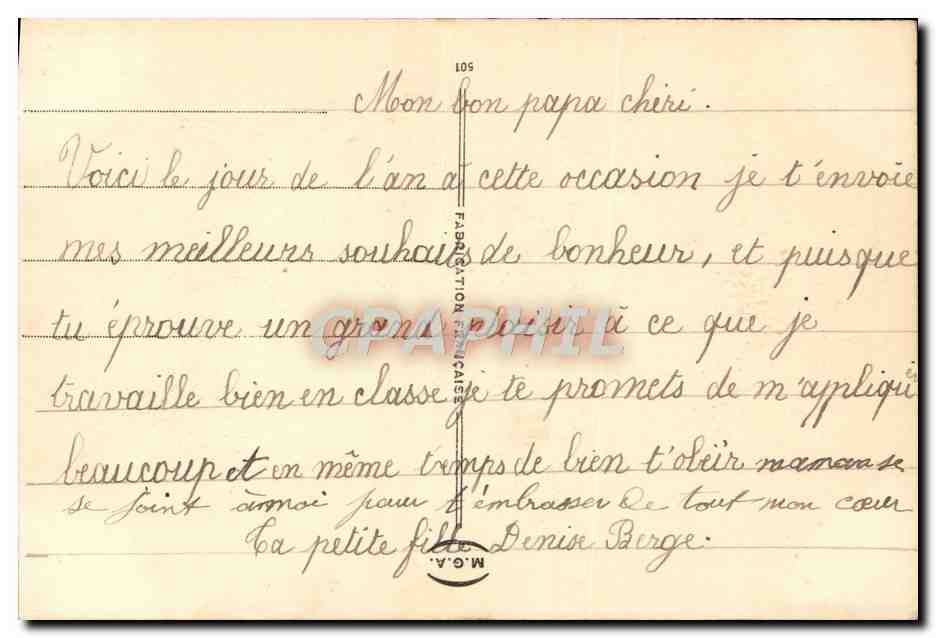 501
Mon bon papa chéri.
Voici le jour de l'an à cette occasion je t'envoie
mes meilleurs souhaits de bonheur, et puisque
tu éprouve un grand plaisir à ce que je
travaille bien en classe je te promets de m'appliquer
beaucoup et en même temps de bien t'obéir maman se
se joint à moi pour t'embrasser de tout mon cœur
Ta petite fille Denise Berge.
FABRICATION FRANÇAISE
M.G.A.
CPAPHIL